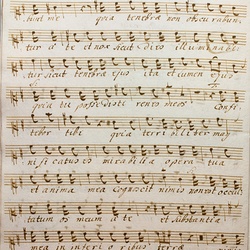 tunt me quia tenebræ non obscurabun
tur à te et nox sicut dies illuminabi
tur sicut tenebræ ejus ita et lumen ejus
quia tu possedisti renes meos Confi
tebor tibi quia terribiliter mag
nificatus es mirabilia opera tua
et anima mea cognoscit nimis non est occul
tatum os meum à te et substantia
mea in inferioribus terræ